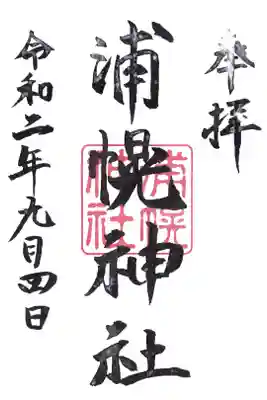 奉拝
浦幌神社
浦幌神社
令和二年九月四日